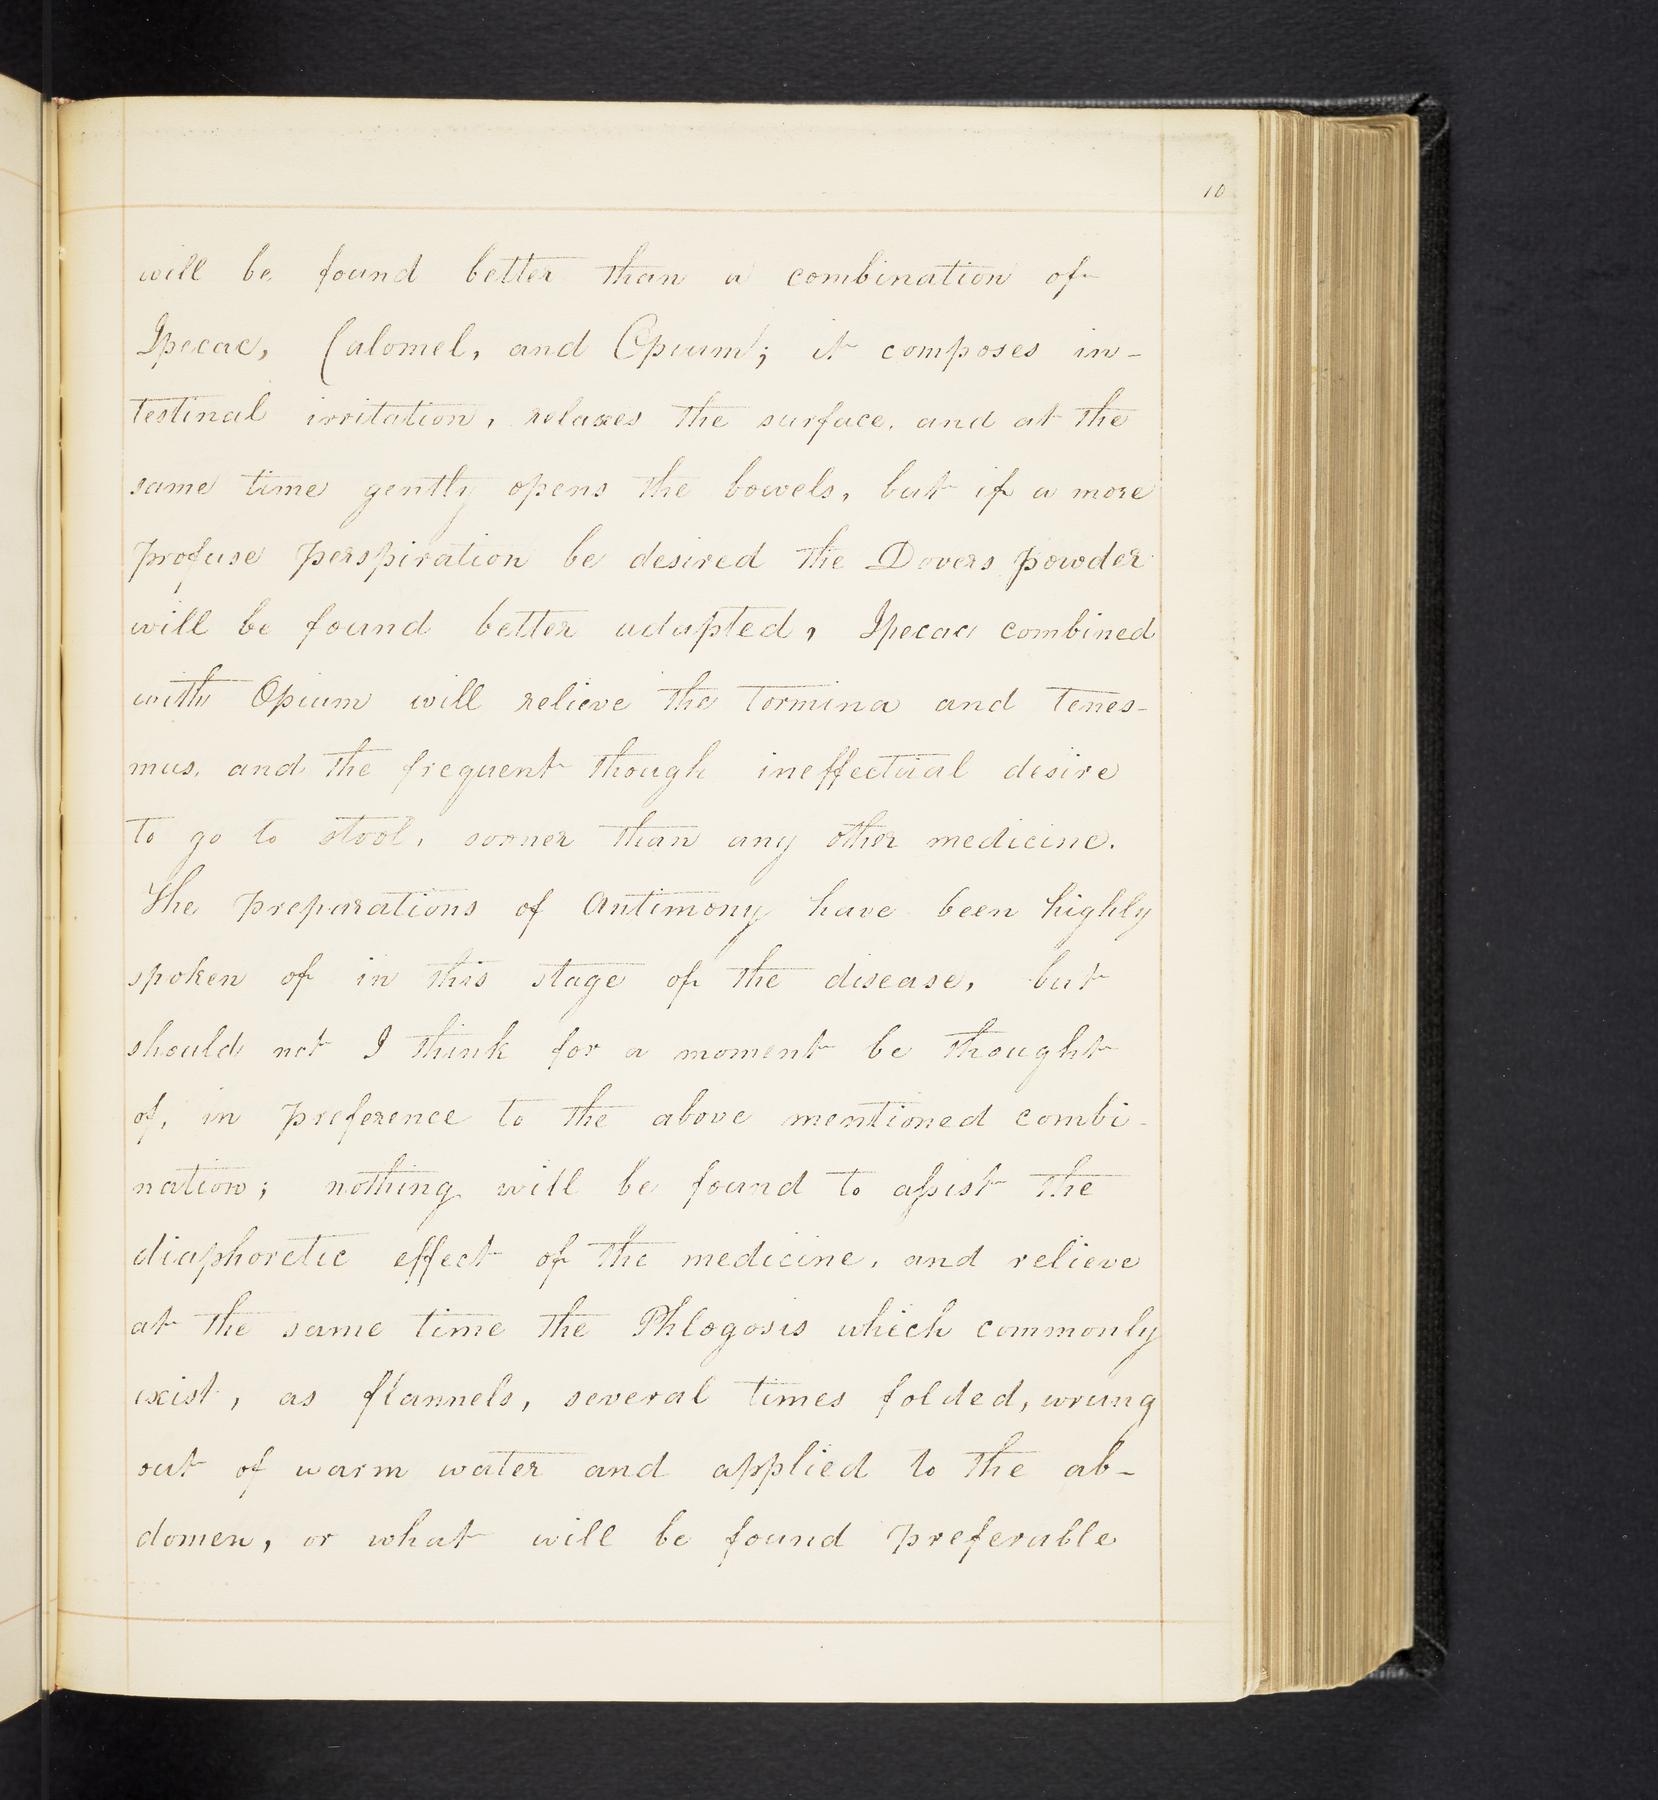 10
will be found better than a combination of
Ipecac, Calomel, and Opium; it composes in-
testinal irritation, relaxes the surface, and at the
same time gently opens the bowels, but if a more
profuse perspiration be desired the Dovers powder
will be found better adapted, Ipecac combined
with Opium will relieve the tormina and tenes-
mus, and the frequent though ineffectual desire
to go to stool, sooner than any other medicine.
The preparations of Antimony have been highly
spoken of in this stage of the disease, but
should not I think for a moment be thought
of, in preference to the above mentioned combi-
nation; nothing will be found to assist the
diaphoretic effect of the medicine, and relieve
at the same time the Phlogosis which commonly
exist, as flannels, several times folded, wrung
out of warm water and applied to the ab-
domen, or what will be found preferable